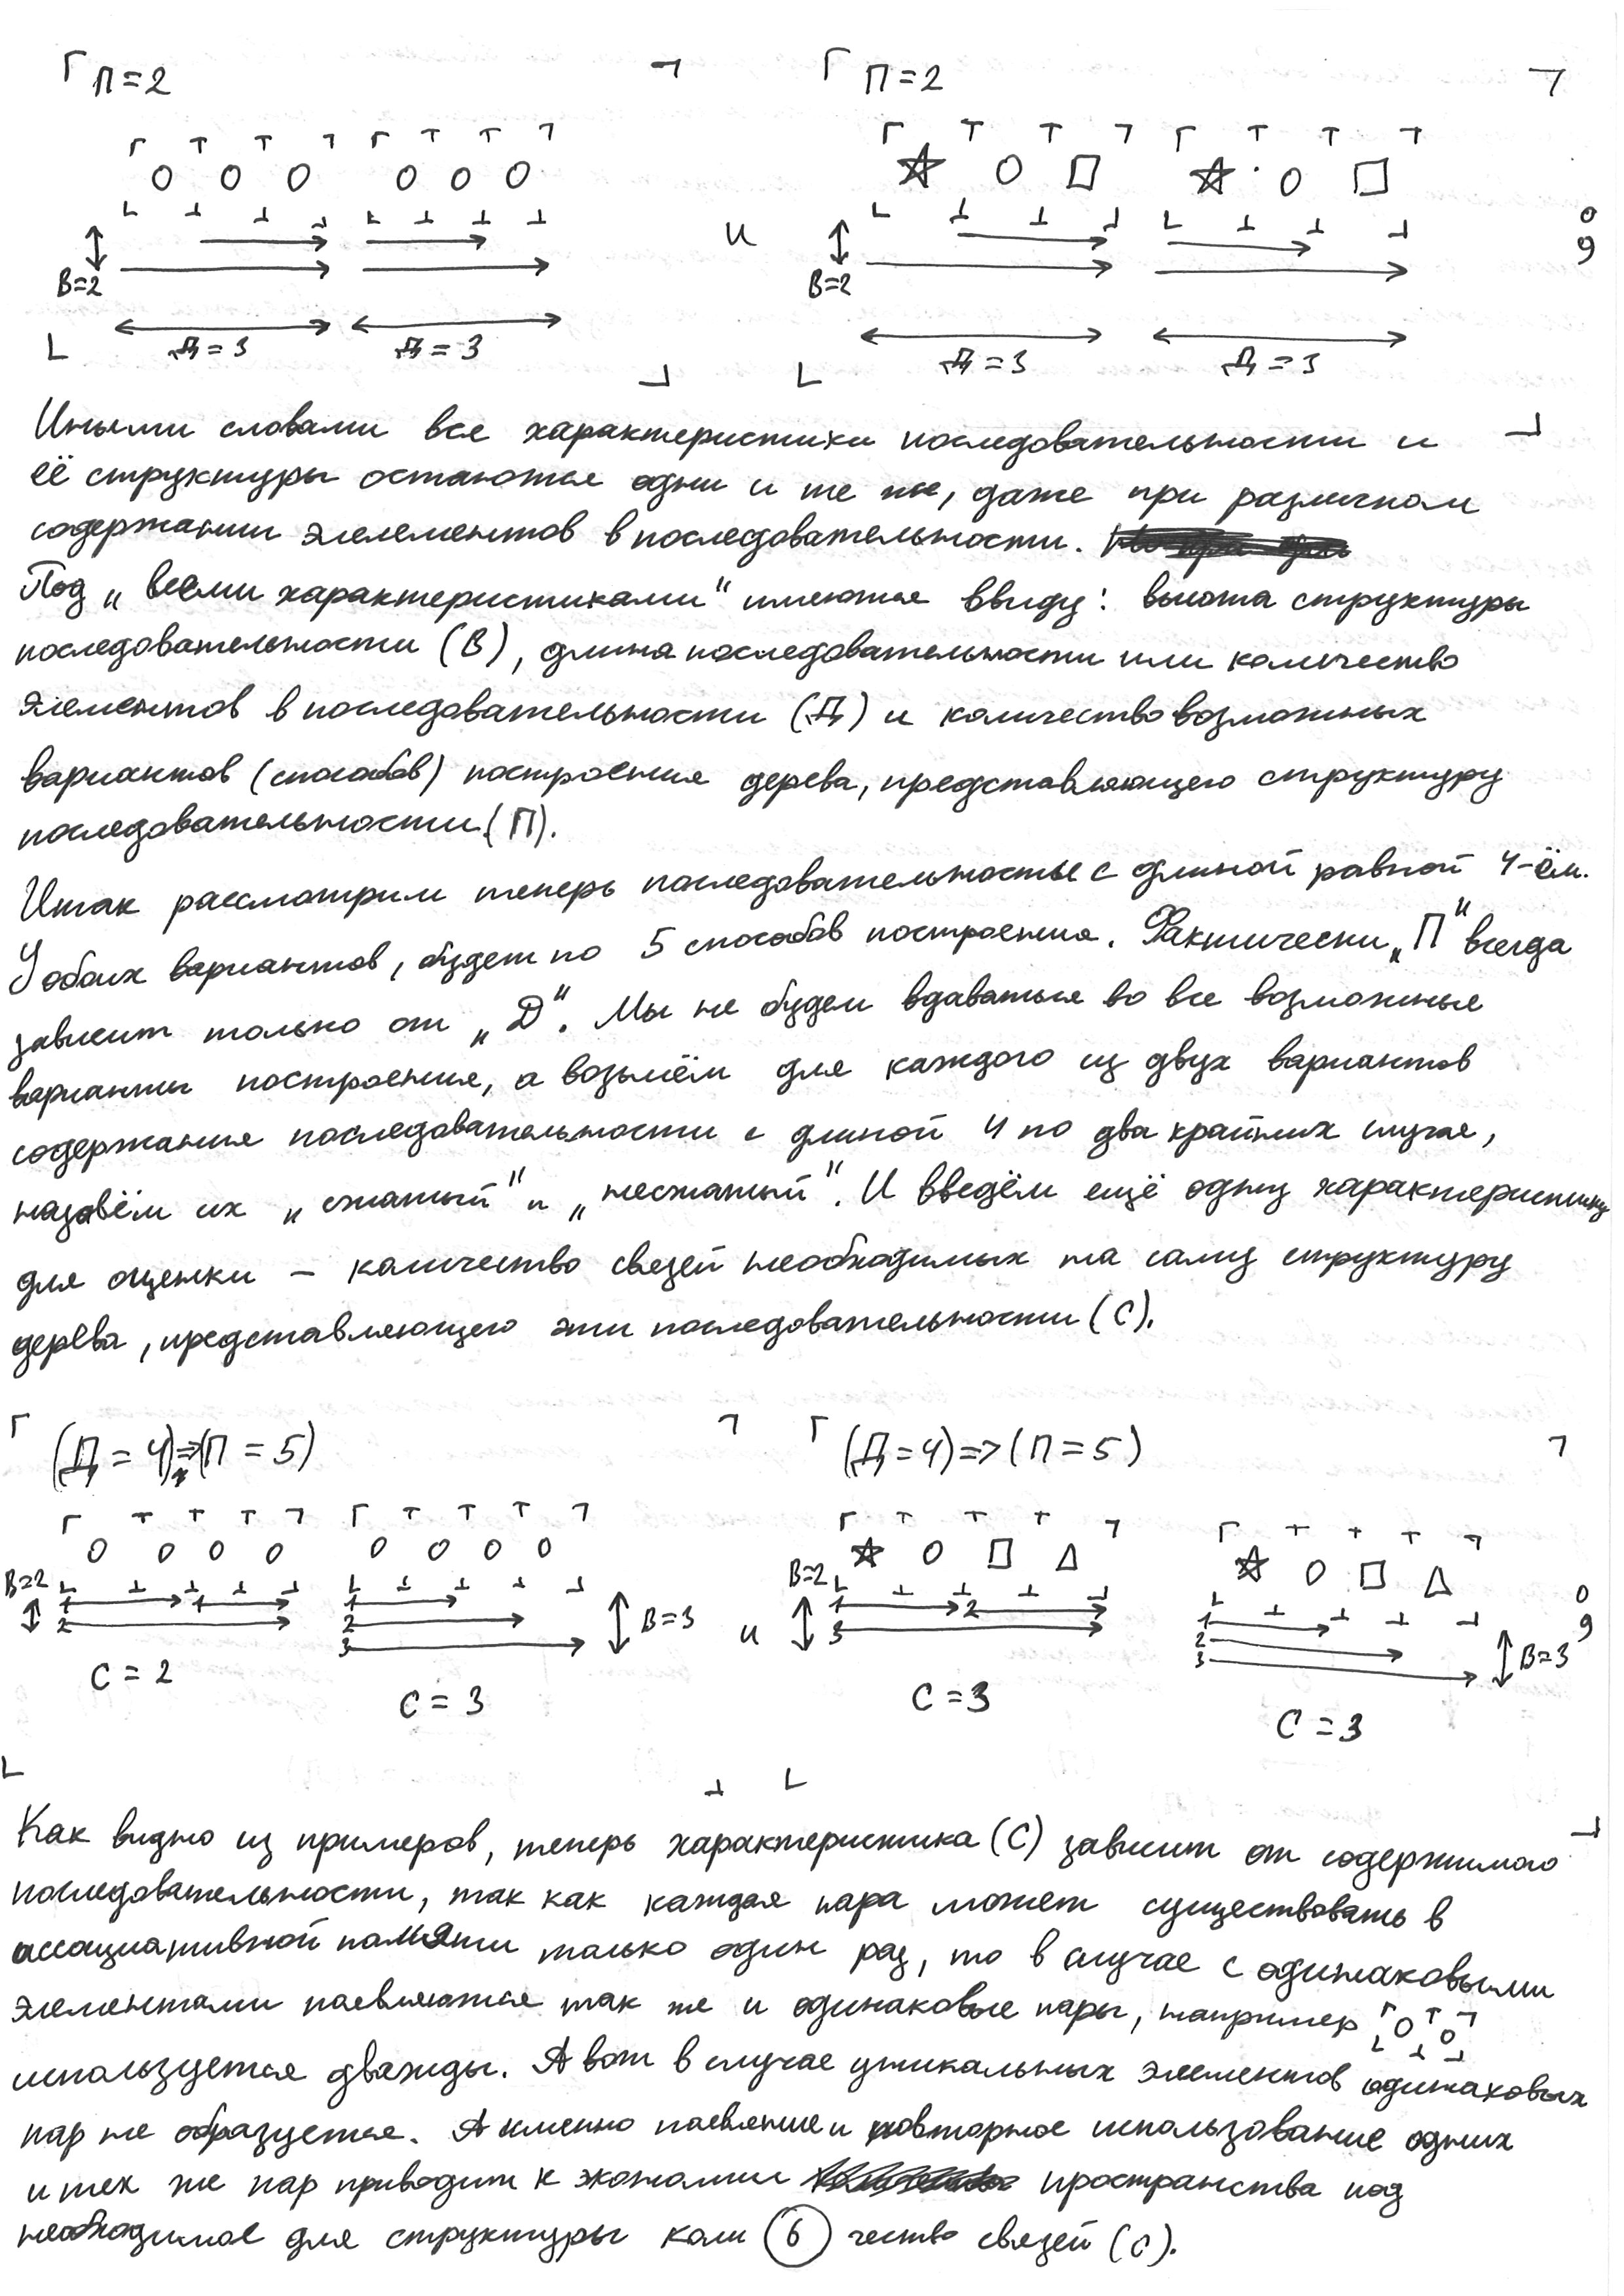 П=2
П=2
В=2
Д=3
Д=3
и
В=2
Д=3
Д=3
Иными словами все характеристики последовательности и
её структуры остаются одни и те же, даже при различном
содержании элелементов в последовательности.
Под „всеми характеристиками" имеются ввиду: высота структуры
последовательности (В), длина последовательности или количество
элементов в последовательности (Д) и количество возможных
вариантов (способов) построения дерева, представляющего структуру
последовательности (П).
Итак рассмотрим теперь последовательностье с длиной равной 4-ём.
У обоих вариантов, будет по 5 способов построения. Фактически „П" всегда
зависит только от „D". Мы не будем вдаваться во все возможные
варианты построения, а возьмём для каждого из двух вариантов
содержания последовательности с длиной 4 по два крайних случая,
назовём их „сжатый" и „несжатый". И введём ещё одну характеристику
для оценки – количество связей необходимых на саму структуру
дерева, представляющего эти последовательности (С).
(Д = 4)=>(П = 5)
(Д=4)=>(П=5)
В=2
1
1
2
С = 2
1
2
3
В=3
С = 3
и
В=2
1
2
3
С =3
1
2
3
В=3
С =3
Как видно из примеров, теперь характеристика (С) зависит от содержимого
последовательности, так как каждая пара может существовать в
ассоциативной памяти только один раз, то в случае с одинаковыми
элементами появляются так же и одинаковые пары, например
используется дважды. А вот в случае уникальных элементов одинаковых
пар не образуется. А именно появление и повторное использование одних
и тех же пар приводит к экономии пространства под
необходимое для структуры коли 6 чество связей (С).